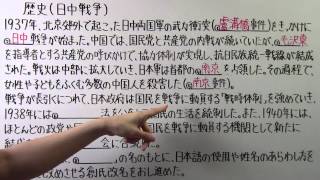 歴史(日中戦争)
1937年、北京郊外で起こった日中両国軍の武力衝突(@盧溝橋事件)をきっかけに
(@日中戦争が始まった。中国では、国民党と共産党の内戦が続いていたが、@毛沢東
を指導者とする共産党の呼びかけで、協力体制がつくられ、抗日民族統一戦線が結成さ
れた。戦火は中部に拡大していき、日本軍は首都の@南京を占領した。その過程で、
女性や子どもをふくむ多数の中国人を殺害した(@南京事件)。
戦争が長引くにつれて、日本政府は国民を戦争に動員する「戦時体制」を強めていき、
1938年には@ 法を公 国民の生活を統制した。また、1940年には、
ほとんどの政党や 国民を戦争に動員する機関として新た
に結 会に
@ の名のもとに、日本語の使用や姓名のあらわし方を
める創氏改名をおし進めた。